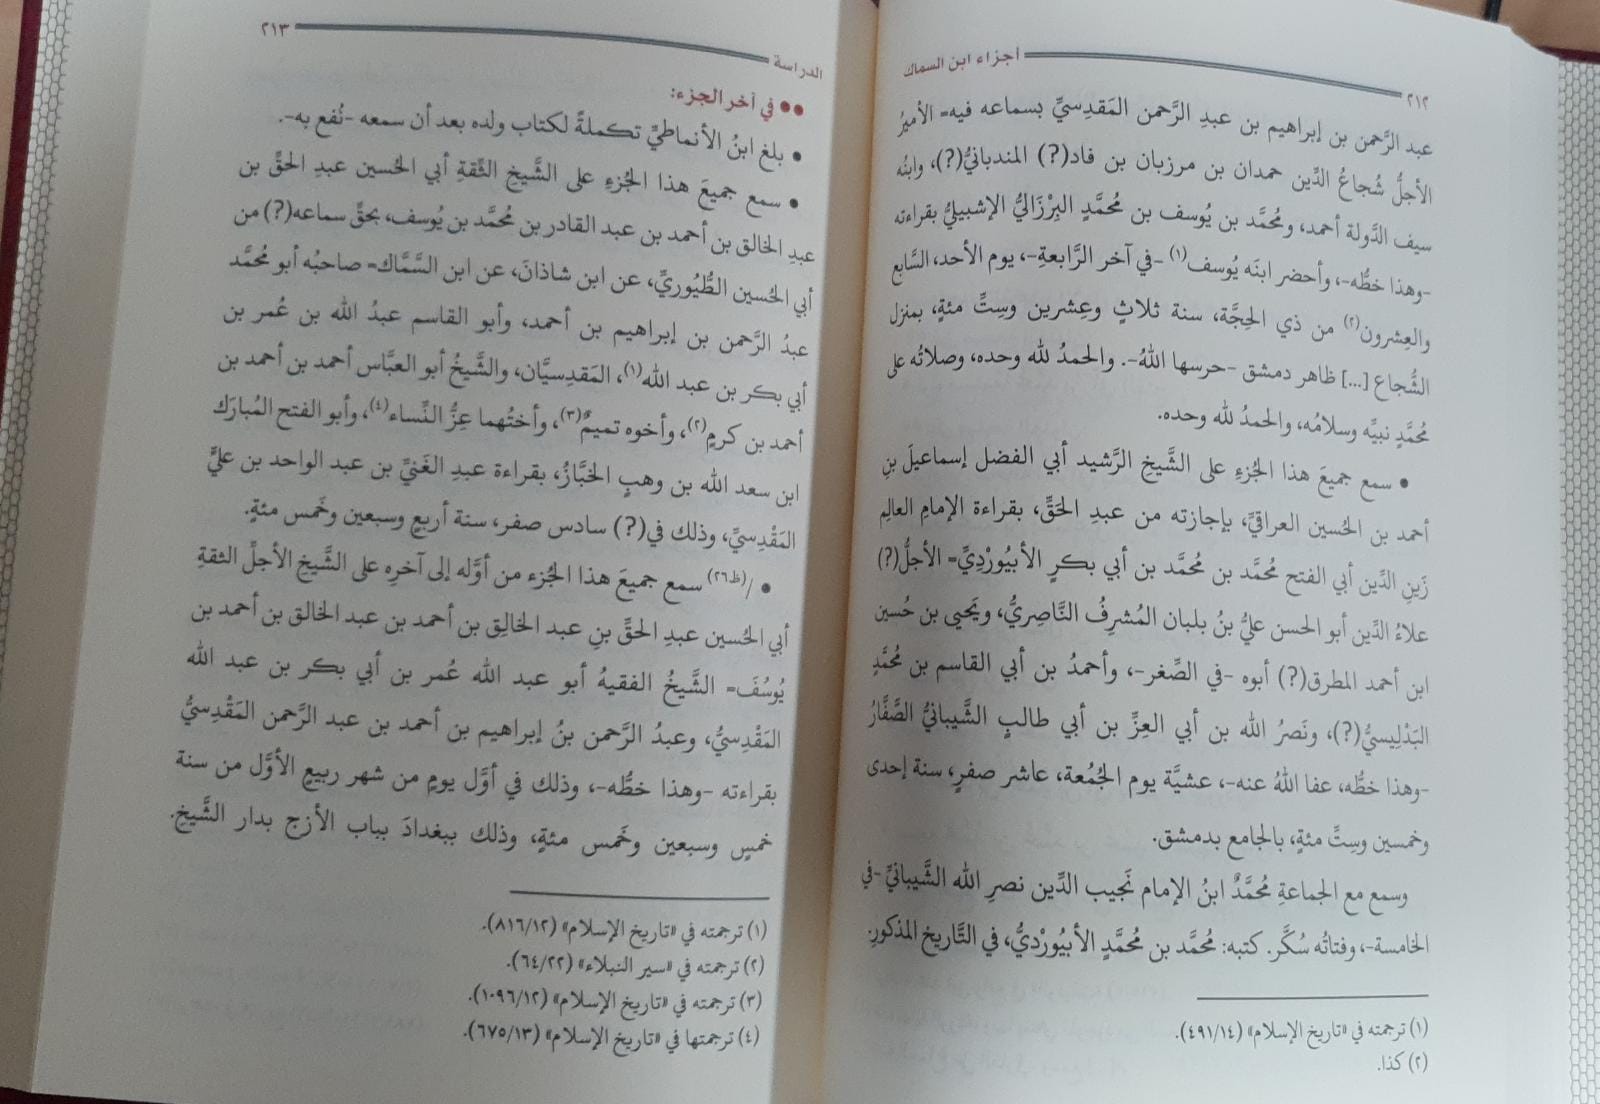 ٢١٢ أجزاء ابن السماك
عبد الرَّحمن بن إبراهيم بن عبد الرَّحمن المَقدِسيِّ بسماعه فيه= الأميرُ
الأجلُّ شُجاعُ الدِّين حمدان بن مرزبان بن فاد(؟) المندبانيُّ(؟)، وابنُه
سيف الدَّولة أحمد، ومُحمَّد بن يُوسف بن مُحمَّدٍ البِرْزَاليُّ الإشبيليُّ بقراءته
-وهذا خطُّه-، وأحضر ابنَه يُوسف(١) -في آخر الرَّابعةِ-، يوم الأحد، السَّابع
والعِشرون(٢) من ذي الحِجَّة، سنة ثلاثٍ وعِشرين وسِتِّ مئةٍ، بمنزل
الشُّجاع [...] ظاهر دمشق -حرسها اللهُ-. والحمدُ لله وحده، وصلاتُه على
مُحمَّدٍ نبيِّه وسلامُه، والحمدُ لله وحده.
• سمع جميعَ هذا الجُزءِ على الشَّيخِ الرَّشيد أبي الفضل إسماعيلَ بنِ
أحمد بن الحُسين العراقيِّ، بإجازته من عبدِ الحَقِّ، بقراءة الإمامِ العالِم
زَينِ الدِّين أبي الفتح مُحمَّد بن مُحمَّد بن أبي بكرٍ الأَبيُورْدِيِّ= الأجلُّ(؟)
علاءُ الدِّين أبو الحسن عليُّ بنُ بلبان المُشرِفُ النَّاصِريُّ، ويَحيى بن حُسين
ابن أحمد المطرق(؟) أبوه -في الصِّغر-، وأحمدُ بن أبي القاسم بن مُحمَّدٍ
البَدْلِيسيُّ(؟)، ونَصرُ الله بن أبي العِزِّ بن أبي طالبٍ الشَّيبانيُّ الصَّفَّارُ
-وهذا خطُّه، عفا اللهُ عنه-، عشيَّة يوم الجُمُعة، عاشر صفرٍ، سنة إحدى
وخمسين وسِتِّ مئةٍ، بالجامع بدمشق.
وسمع مع الجماعةِ مُحمَّدٌ ابنُ الإمام نَجيب الدِّين نصرِ الله الشَّيبانيِّ -في
الخامسة-، وفتاتُه سُكَّر. كتبه: مُحمَّد بن مُحمَّدٍ الأبيُورْديُّ، في التَّاريخ المذكورِ.
(١) ترجمته في «تاريخ الإسلام» (٤٩١/١٤).
(٢) كذا.
الدراسة ٢١٣
•• في آخر الجزء:
• بلغ ابنُ الأنماطيِّ تكملةً لكتاب ولده بعد أن سمعه -نُفع به-.
• سمع جميعَ هذا الجُزءِ على الشَّيخِ الثِّقةِ أبي الحُسين عبدِ الحقِّ بن
عبدِ الخالق بن أحمد بن عبد القادر بن مُحمَّد بن يُوسف، بحقِّ سماعه(؟) من
أبي الحُسين الطُّيُوريِّ، عن ابن شاذانَ، عن ابن السَّمَّاك= صاحبُه أبو مُحمَّد
عبدُ الرَّحمن بن إبراهيم بن أحمد، وأبو القاسم عبدُ الله بن عُمر بن
أبي بكر بن عبد الله(١)، المَقدِسيَّان، والشَّيخُ أبو العبَّاس أحمد بن أحمد بن
أحمد بن كرمٍ(٢)، وأخوه تميمٌ(٣)، وأختُهما عِزُّ النِّساء(٤)، وأبو الفتح المُبارَك
ابن سعد الله بن وهبٍ الخبَّازُ، بقراءة عبدِ الغَنيِّ بن عبد الواحد بن عليٍّ
المَقْدِسيِّ، وذلك في(؟) سادس صفر، سنة أربعٍ وسبعين وخَمس مئةٍ.
• /(٢٦ظ) سمع جميعَ هذا الجُزء من أوَّله إلى آخرِه على الشَّيخِ الأجلِّ الثقةِ
أبي الحُسين عبدِ الحقِّ بنِ عبد الخالِق بن أحمد بن عبد الخالق بن أحمد بن
يُوسُفَ= الشَّيخُ الفقيهُ أبو عبد الله عُمر بن أبي بكر بن عبد الله
المَقْدِسيُّ، وعبدُ الرَّحمن بنُ إبراهيم بن أحمد بن عبد الرَّحمن المَقْدِسيُّ
بقراءته -وهذا خطُّه-، وذلك في أوَّل يومٍ من شهر ربيعٍ الأوَّل من سنة
خمسٍ وسبعين وخَمس مئةٍ، وذلك ببغدادَ بباب الأزج بدار الشَّيخِ.
(١) ترجمته في «تاريخ الإسلام» (٨١٦/١٢).
(٢) ترجمته في «سير النبلاء» (٦٤/٢٢).
(٣) ترجمته في «تاريخ الإسلام» (١٠٩٦/١٢).
(٤) ترجمتها في «تاريخ الإسلام» (٦٧٥/١٣).